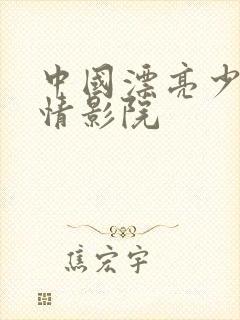 中國漂亮少
情影院
焦宏宇